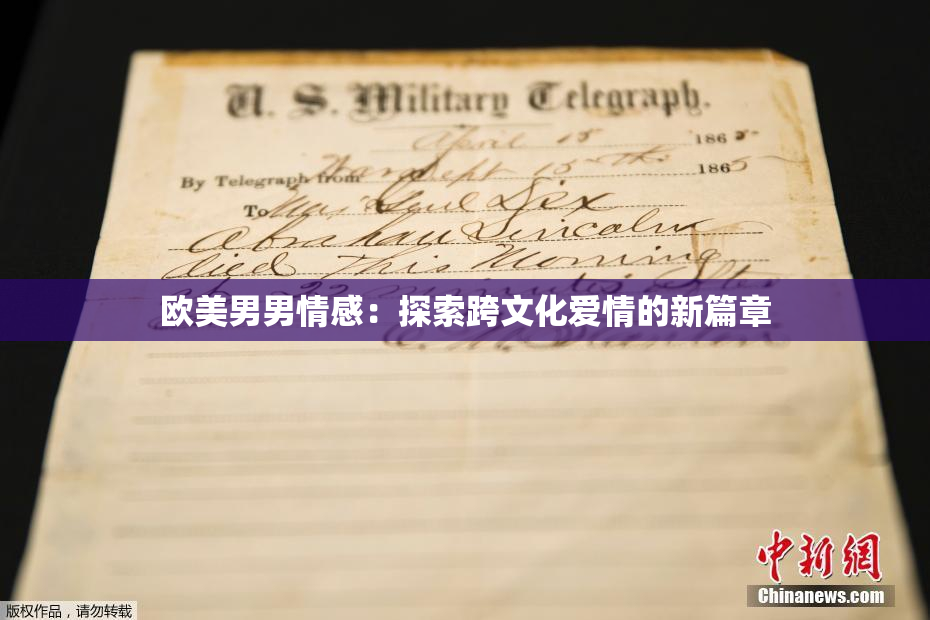 U. S. Military Telegraph.
April 15 1865
By Telegraph from War Dept 15th 1865
To Maj Genl Dix
Abraham Lincoln
died This Morning
at 22 minutes after
欧美男男情感：探索跨文化爱情的新篇章
E. M. Stanton
中新網
Chinanews.com
版权作品，请勿转载